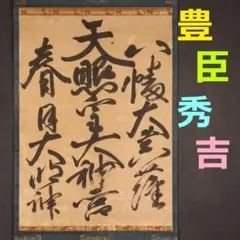 豊臣秀吉
八幡大菩薩
天照皇大神宮
春日大明神